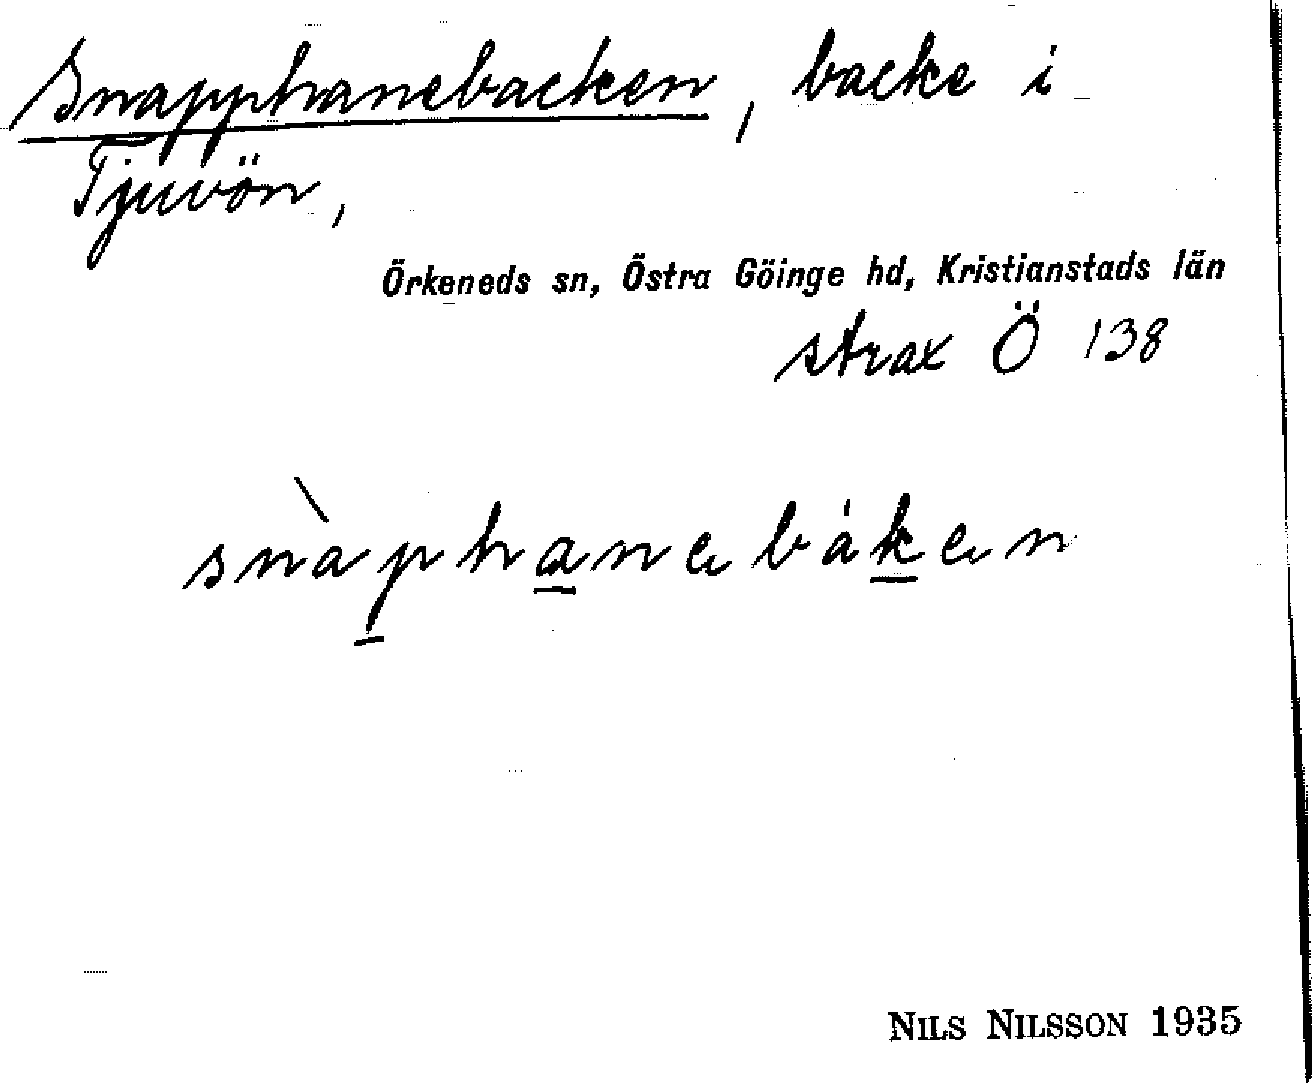 Snapphanebacken, backe i
Tjuvön,
Örkeneds sn, Östra Göinge hd, Kristianstads län
strax Ö 138
snàp̲ha̲nebák̲en
NILS NILSSON 1935